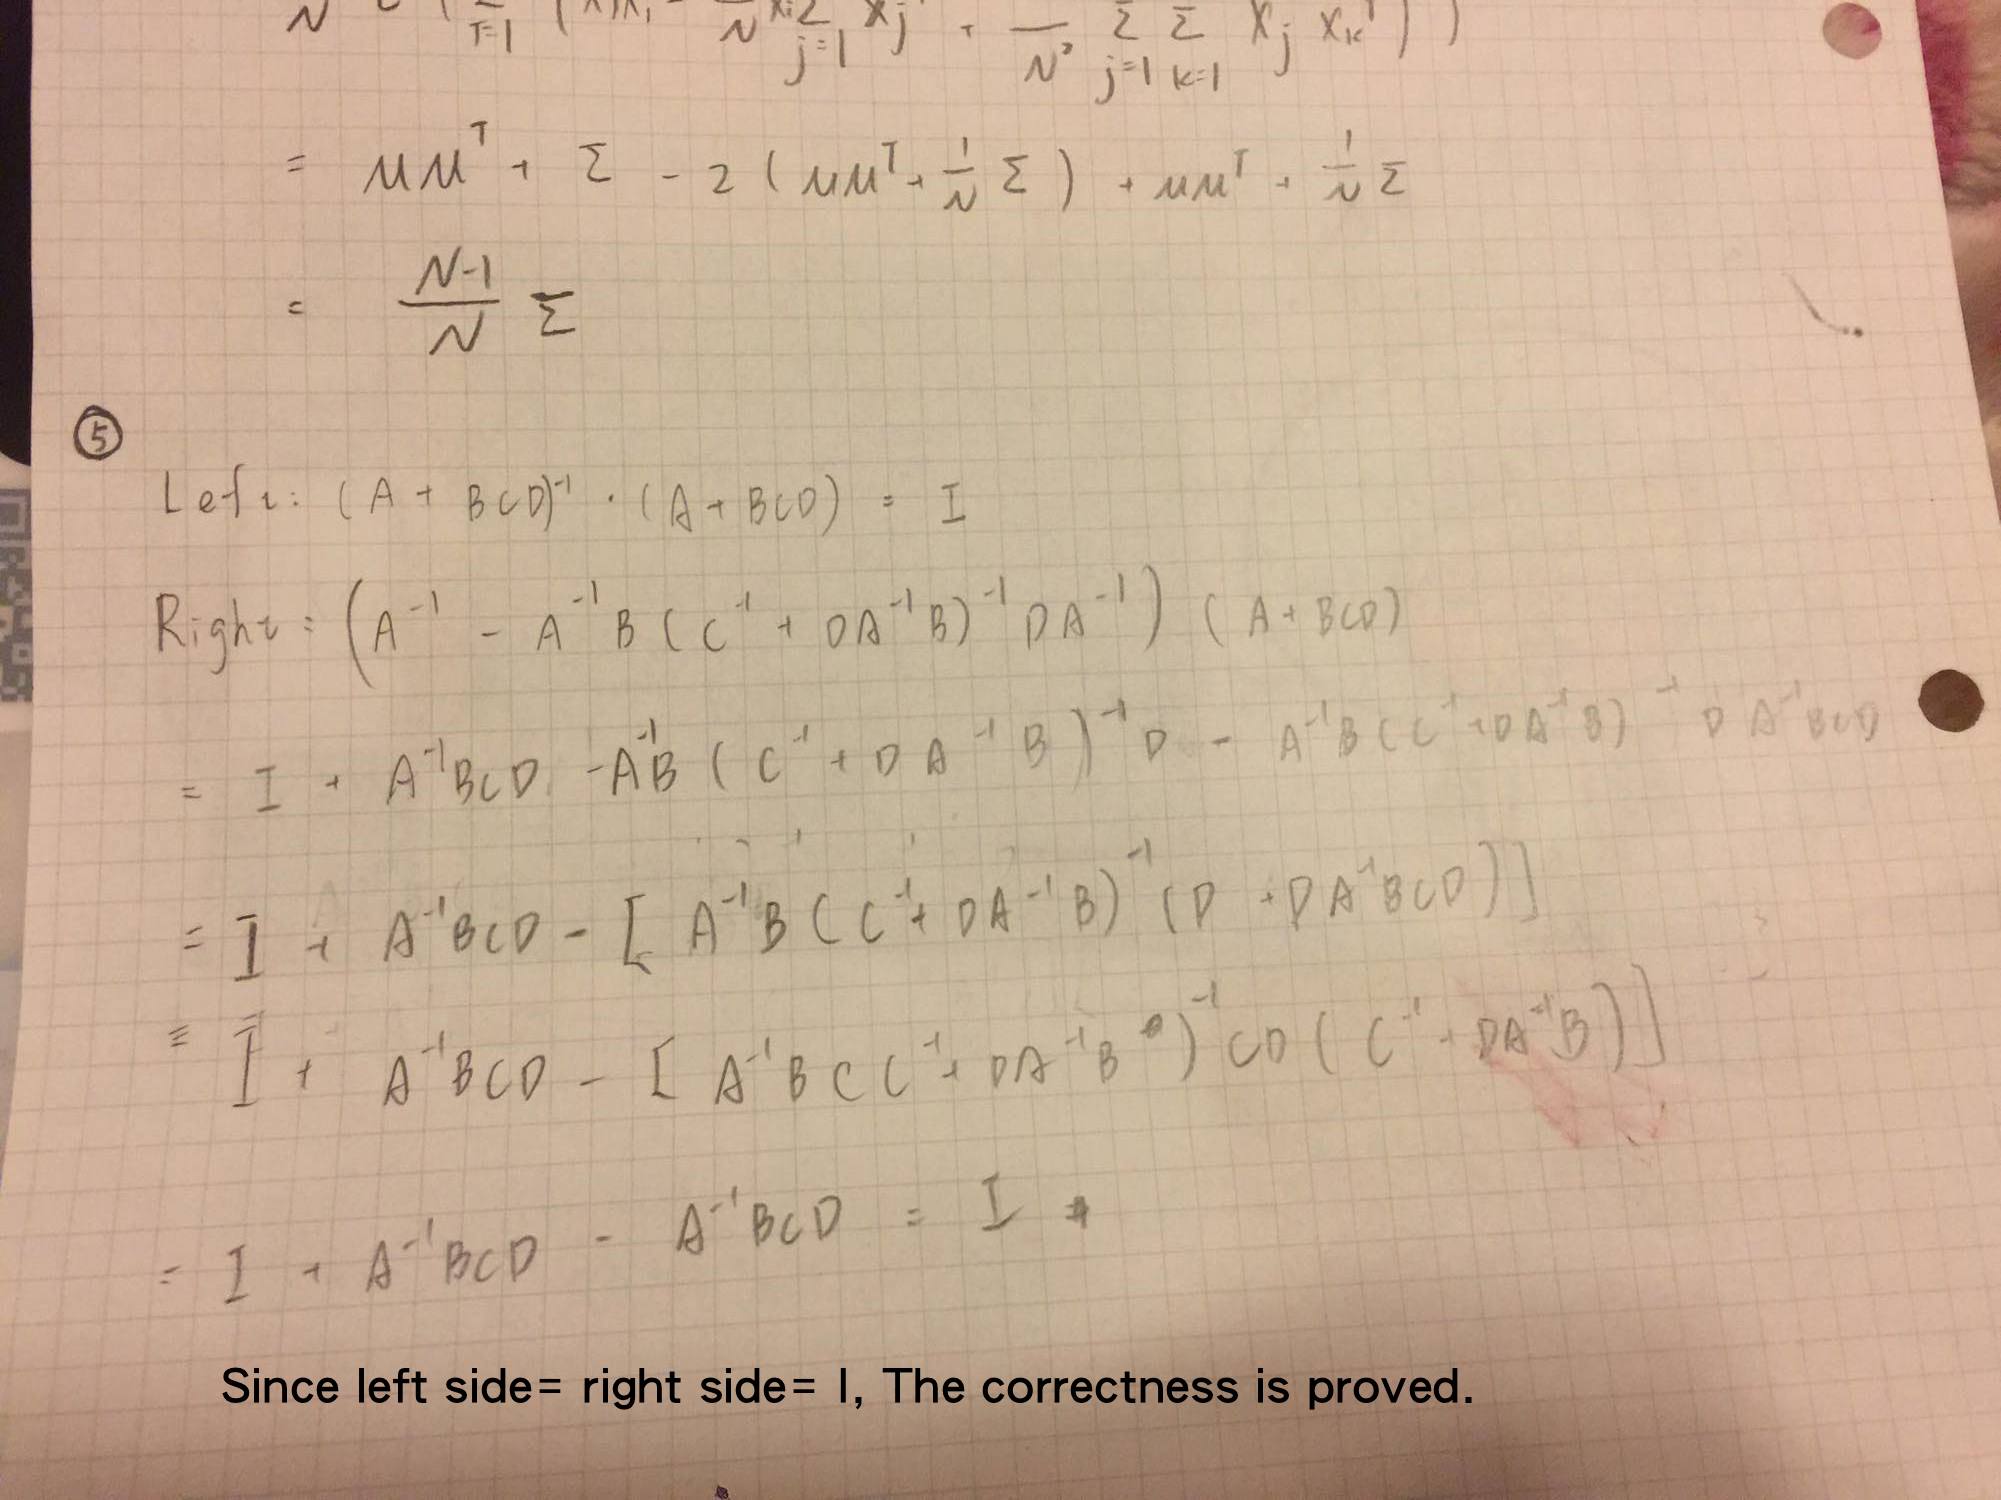 N Σ i=1 ( xixi - N xi Σ j=1 xj + N² Σ j=1 Σ k=1 xj xkᵀ ) )
= μμᵀ + Σ - 2 ( μμᵀ + 1/N Σ ) + μμᵀ + 1/N Σ
= N-1/N Σ
⑤
Left: (A + BCD)⁻¹ · (A + BCD) = I
Right: (A⁻¹ - A⁻¹B (C⁻¹ + DA⁻¹B)⁻¹ DA⁻¹) (A + BCD)
= I + A⁻¹BCD - A⁻¹B (C⁻¹ + DA⁻¹B)⁻¹ D - A⁻¹B (C⁻¹ + DA⁻¹B)⁻¹ DA⁻¹BCD
= I + A⁻¹BCD - [A⁻¹B (C⁻¹ + DA⁻¹B)⁻¹ (D + DA⁻¹BCD)]
= I + A⁻¹BCD - [A⁻¹B (C⁻¹ + DA⁻¹B)⁻¹ CD (C⁻¹ + DA⁻¹B)]
= I + A⁻¹BCD - A⁻¹BCD = I
Since left side= right side= I, The correctness is proved.